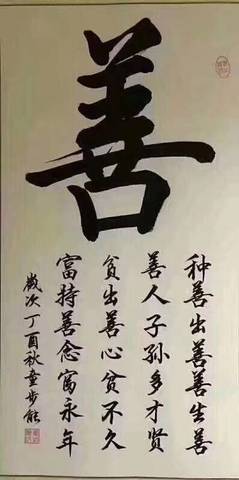 善
种善出善善生善
善人子孙多才贤
贫出善心贫不久
富持善念富永年
岁次丁酉秋童步能